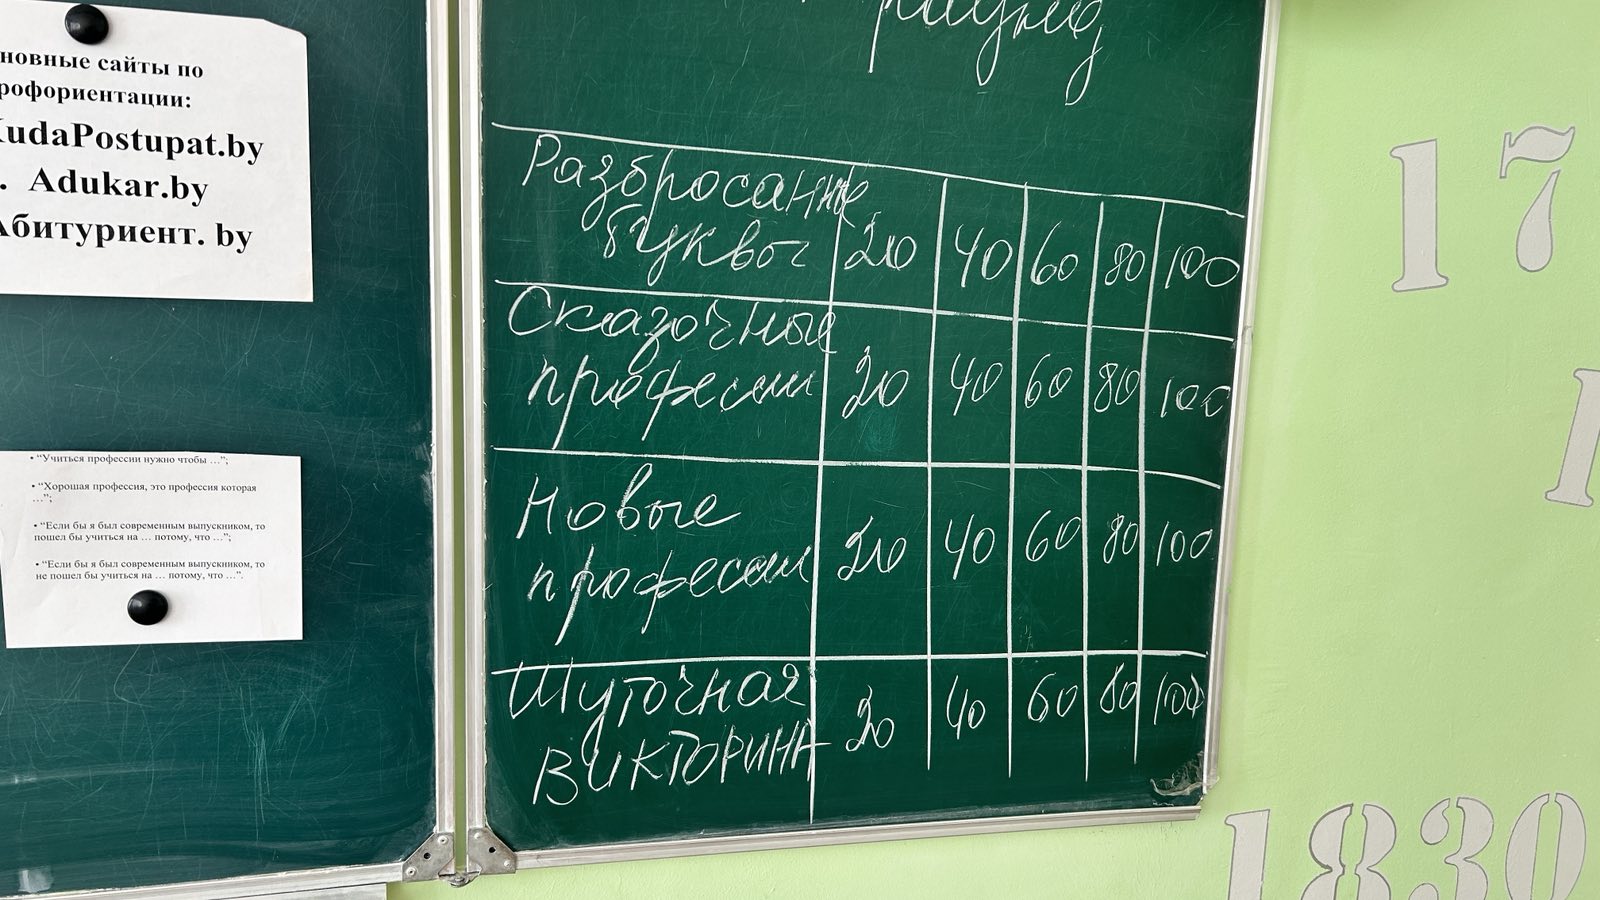 новные сайты по
рофориентации:
KudaPostupat.by
. Adukar.by
Абитуриент. by
• “Учиться профессии нужно чтобы …”;
• “Хорошая профессия, это профессия которая
…”;
• “Если бы я был современным выпускником, то
пошел бы учиться на … потому, что …”;
• “Если бы я был современным выпускником, то
не пошел бы учиться на … потому, что …”.
раунд
Разбросанные
буквы 20 40 60 80 100
Сказочные
профессии 20 40 60 80 100
Новые
профессии 20 40 60 80 100
Шуточная
ВИКТОРИНА 20 40 60 80 100
17
1
1830